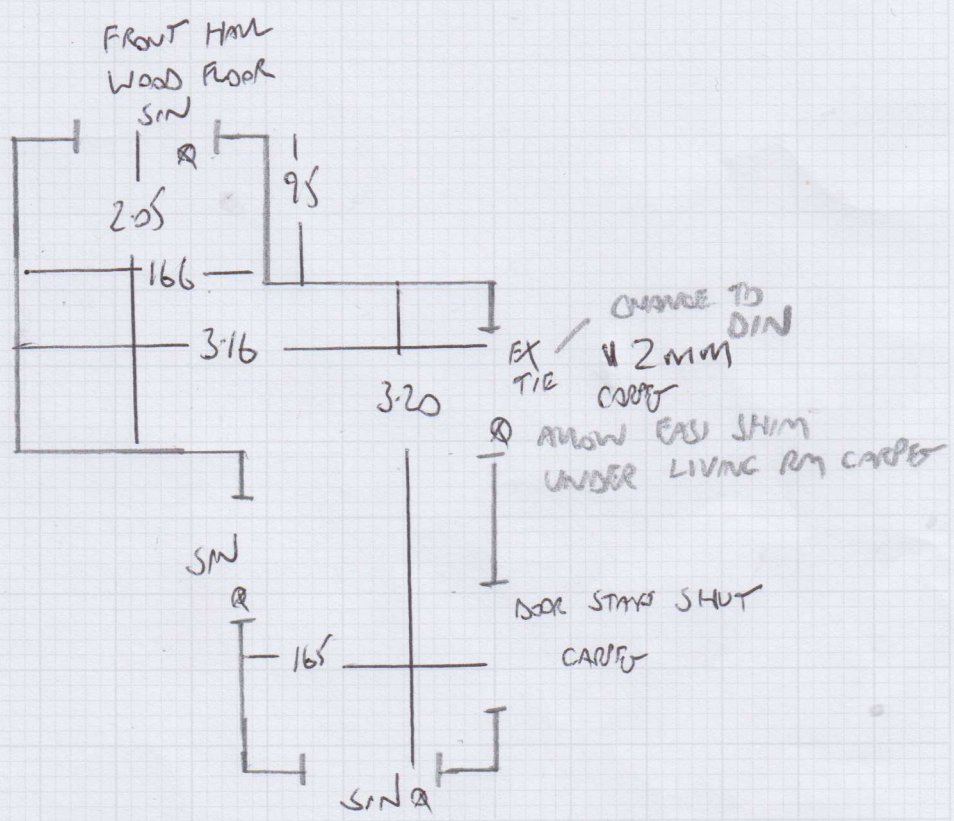 FRONT HALL
WOOD FLOOR
SIN
Q
95
2.05
166
3.16
EX
TIE
CHANGE TO
DIN
12mm
CARPET
3.20
Q
ALLOW EASI SHIM
UNDER LIVING RM CARPET
SIN
Q
DOOR STAYS SHUT
CARPET
165
SIN Q